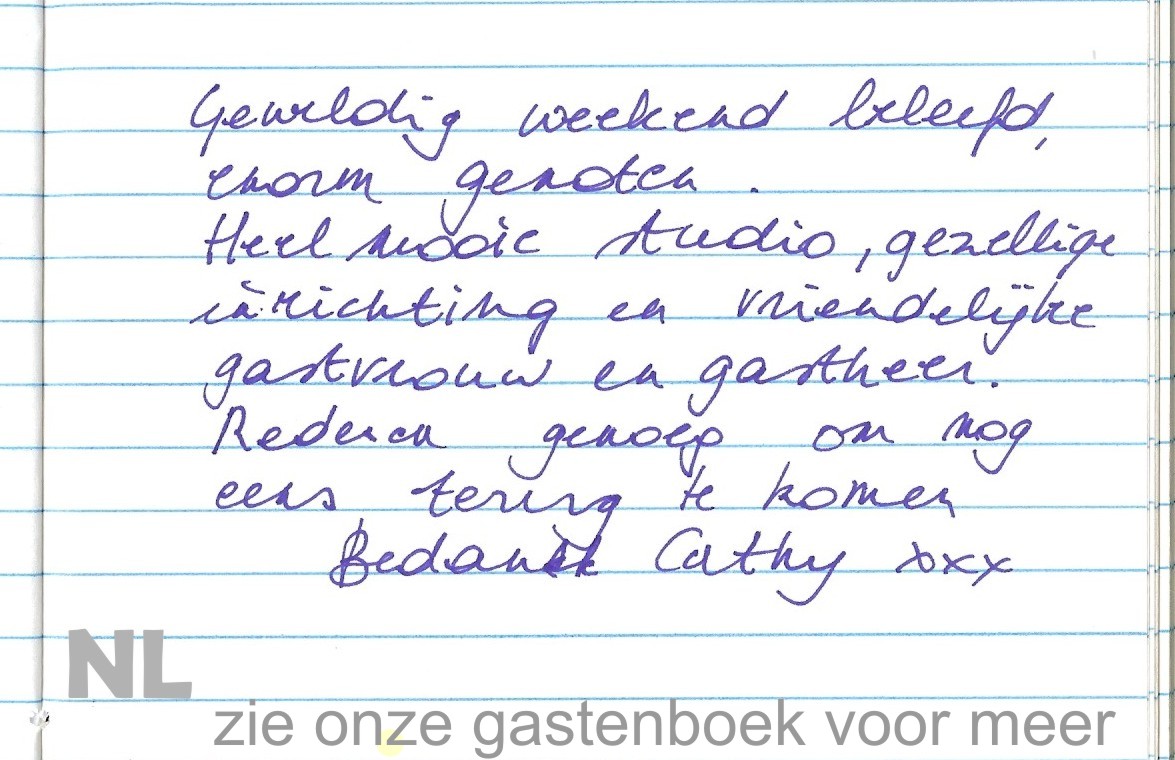 Geweldig weekend beleefd,
enorm genoten.
Heel mooie studio, gezellige
inrichting en vriendelijke
gastvrouw en gastheer.
Redenen genoeg om nog
eens terug te komen
Bedankt Cathy xxx
NL
zie onze gastenboek voor meer